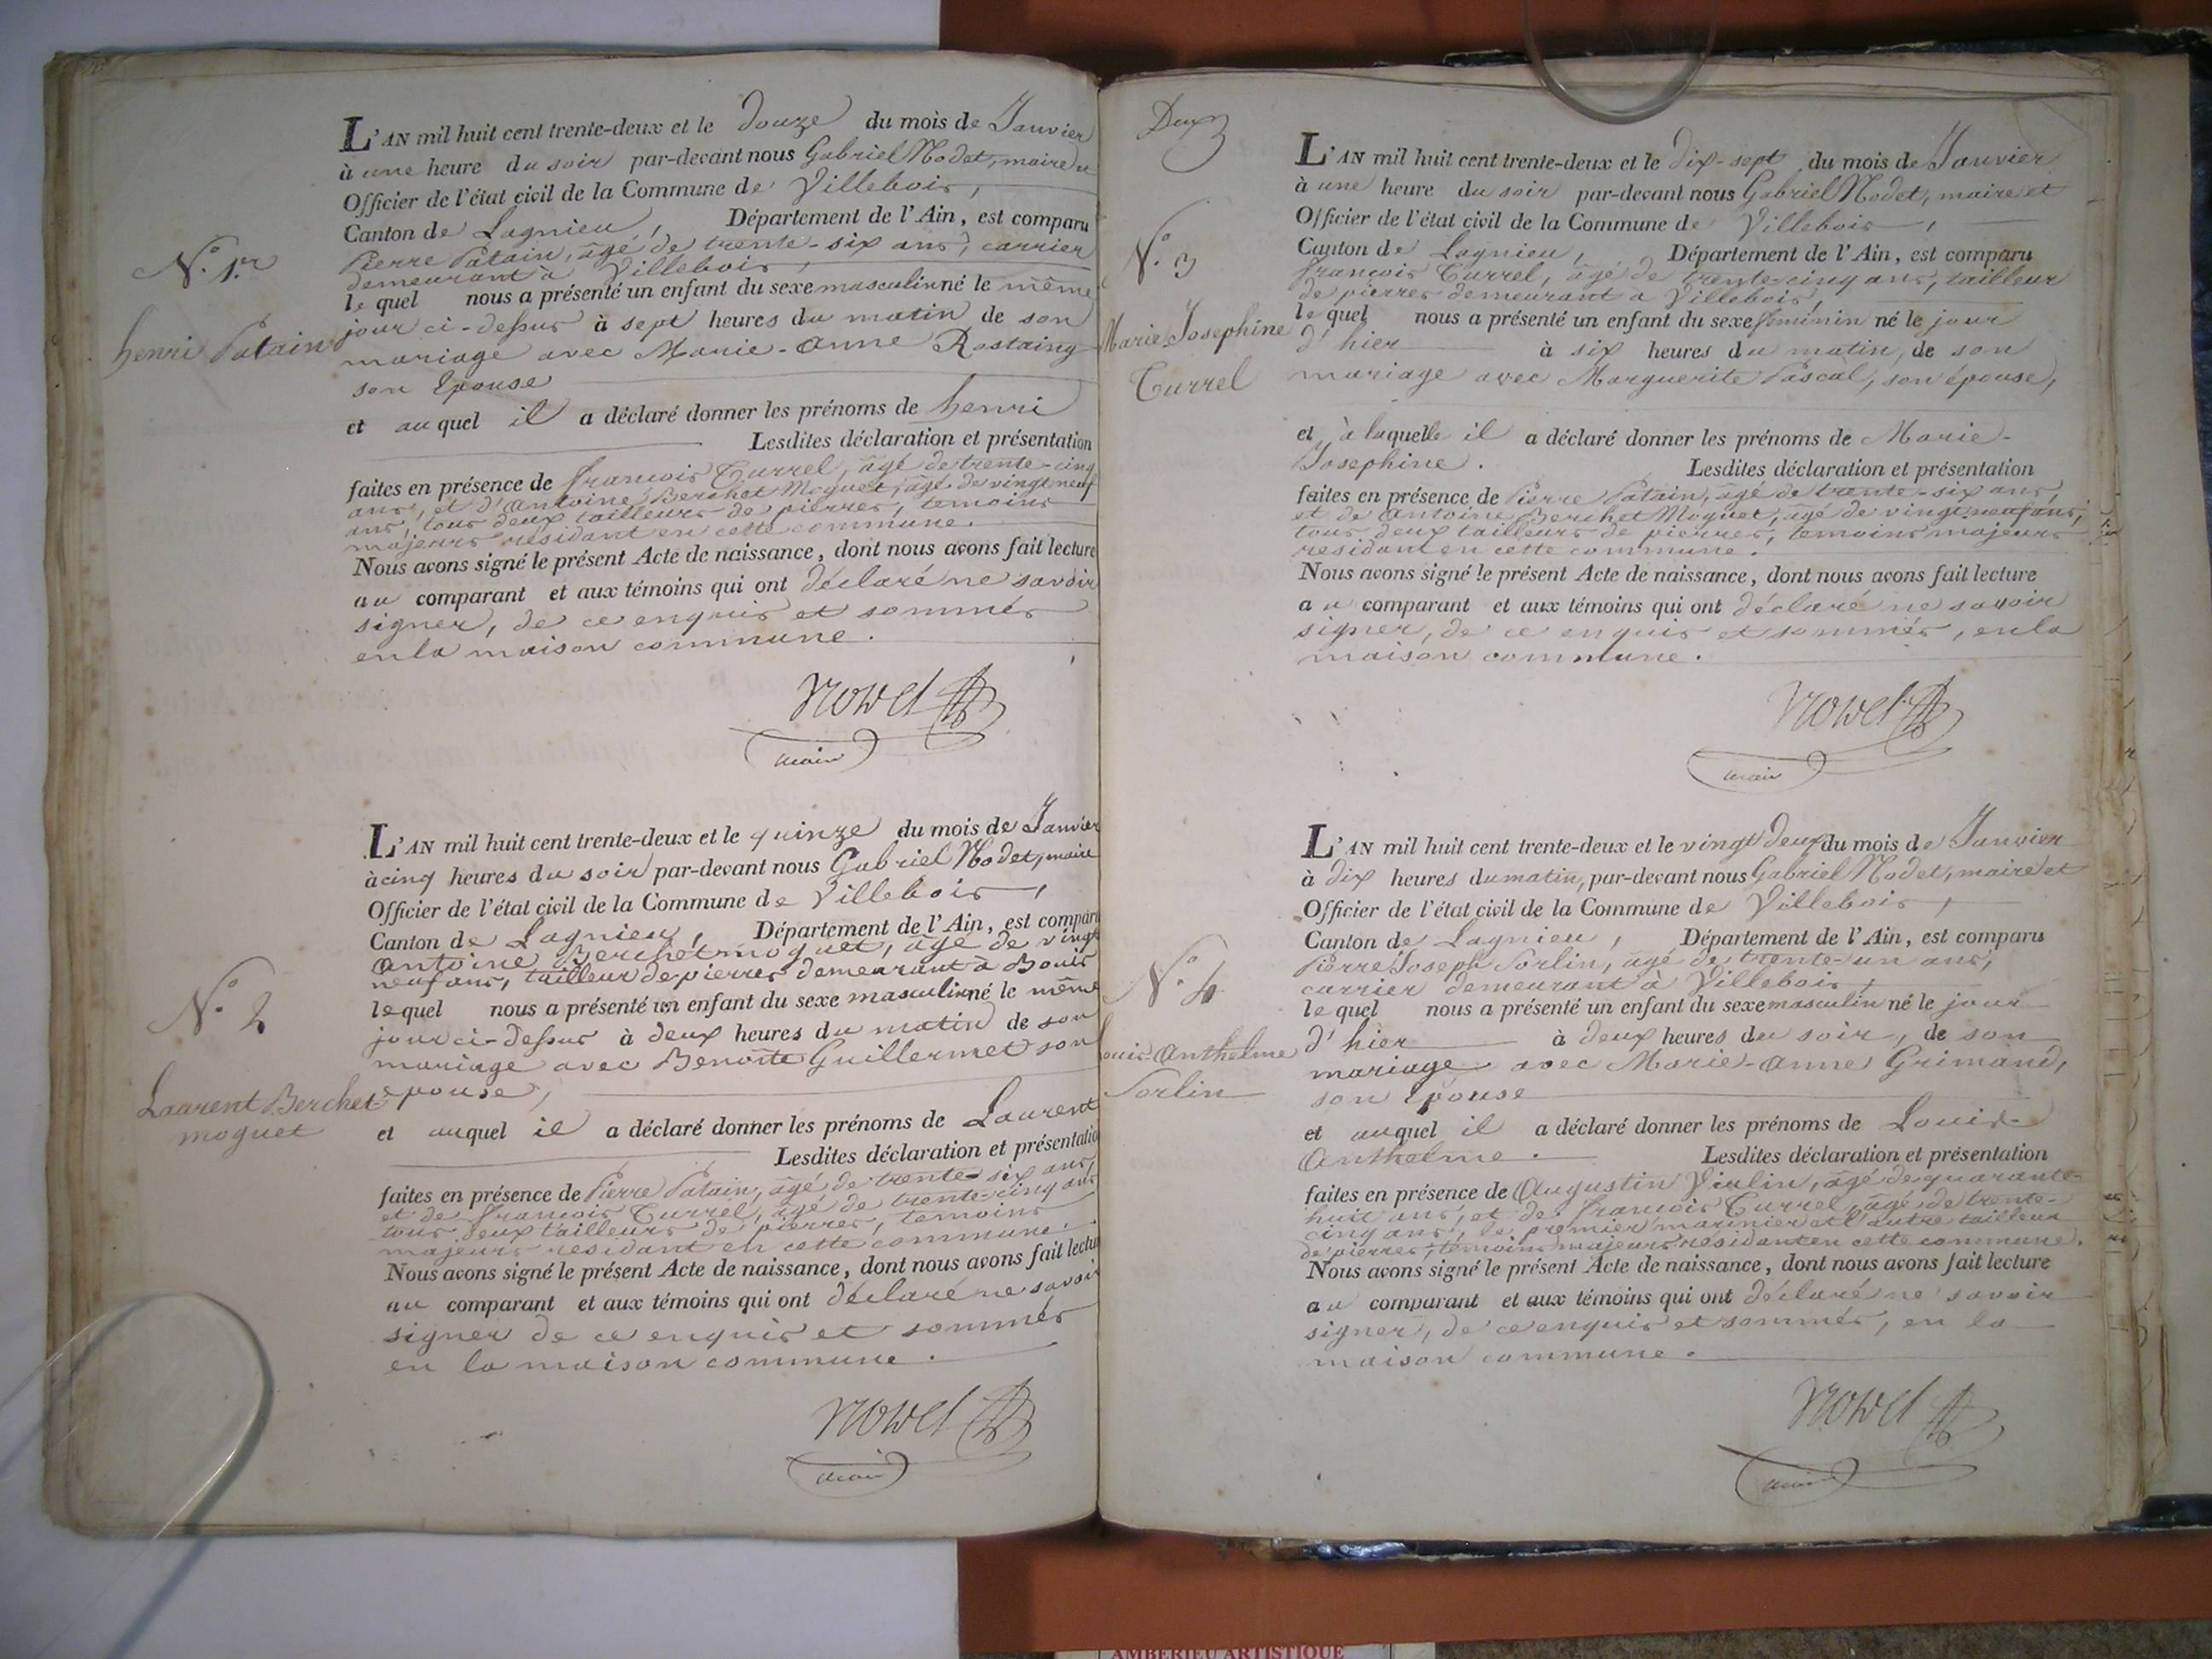 N.o 1.er
henri Patain
L'AN mil huit cent trente-deux et le douze du mois de Janvier
à une heure du soir par-devant nous Gabriel Nodet, maire
Officier de l'état civil de la Commune de Villebois,
Canton de Lagnieu, Département de l'Ain, est comparu
Pierre Patain, âgé de trente-six ans, carrier
demeurant à Villebois,
lequel nous a présenté un enfant du sexe masculin né le même
jour ci-dessus à sept heures du matin de son
mariage avec Marie-Anne Rostaing
son épouse
et auquel il a déclaré donner les prénoms de henri
Lesdites déclaration et présentation
faites en présence de francois Currel, âgé de trente-cinq
ans, et d'Antoine Berchet Moguet, âgé de vingt neuf
ans, tous deux tailleurs de pierres, temoins
majeurs residant en cette commune.
Nous avons signé le présent Acte de naissance, dont nous avons fait lecture
au comparant et aux témoins qui ont déclaré ne savoir
signer, de ce enquis et sommés
en la maison commune.
maire
N.o 2
Laurent Berchet
moguet
L'AN mil huit cent trente-deux et le quinze du mois de Janvier
à cinq heures du soir par-devant nous Gabriel Nodet, maire
Officier de l'état civil de la Commune de Villebois,
Canton de Lagnieu, Département de l'Ain, est comparu
Antoine Berchet moguet, âgé de vingt
neuf ans, tailleur de pierres demeurant à Bouis
lequel nous a présenté un enfant du sexe masculin né le même
jour ci-dessus à deux heures du matin de son
mariage avec Benoite Guillermet son
epouse,
et auquel il a déclaré donner les prénoms de Laurent
Lesdites déclaration et présentatio
faites en présence de Pierre Patain, âgé de trente-six ans,
et de francois Currel, âgé de trente-cinq ans
tous deux tailleurs de pierres, temoins
majeurs residant en cette commune.
Nous avons signé le présent Acte de naissance, dont nous avons fait lectu
au comparant et aux témoins qui ont déclaré ne savoir
signer de ce enquis et sommés
en la maison commune.
maire
Deux
N.o 3
Marie Josephine
Currel
L'AN mil huit cent trente-deux et le dix-sept du mois de Janvier
à une heure du soir par-devant nous Gabriel Nodet, maire et
Officier de l'état civil de la Commune de Villebois,
Canton de Lagnieu, Département de l'Ain, est comparu
francois Currel, âgé de trente-cinq ans, tailleur
de pierres demeurant à Villebois,
lequel nous a présenté un enfant du sexe feminin né le jour
d'hier à six heures du matin, de son
mariage avec Marguerite Pascal, son épouse,
et à laquelle il a déclaré donner les prénoms de Marie-
Josephine. Lesdites déclaration et présentation
faites en présence de Pierre Patain, âgé de trente-six ans,
et de Antoine Berchet Moguet, âgé de vingt neuf ans,
tous deux tailleurs de pierres, temoins majeurs
residant en cette commune.
Nous avons signé le présent Acte de naissance, dont nous avons fait lecture
au comparant et aux témoins qui ont déclaré ne savoir
signer, de ce enquis et sommés, en la
maison commune.
maire
N.o 4
Louis-Anthelme
Sorlin
L'AN mil huit cent trente-deux et le vingt Deux du mois de Janvier
à dix heures du matin, par-devant nous Gabriel Nodet, maire et
Officier de l'état civil de la Commune de Villebois,
Canton de Lagnieu, Département de l'Ain, est comparu
Pierre Joseph Sorlin, âgé de trente-un ans,
carrier demeurant à Villebois,
lequel nous a présenté un enfant du sexe masculin né le jour
d'hier à deux heures du soir, de son
mariage avec Marie-Anne Grimand,
son épouse
et auquel il a déclaré donner les prénoms de Louis-
Anthelme. Lesdites déclaration et présentation
faites en présence de Augustin Vialin, âgé de quarante-
huit ans, et de francois Currel, âgé de trente-
cinq ans, le premier marinier et l'autre tailleur
de pierres, temoins majeurs residant en cette commune.
Nous avons signé le présent Acte de naissance, dont nous avons fait lecture
au comparant et aux témoins qui ont déclaré ne savoir
signer, de ce enquis et sommés, en la
maison commune.
maire
AMBERIEU ARTISTIQUE